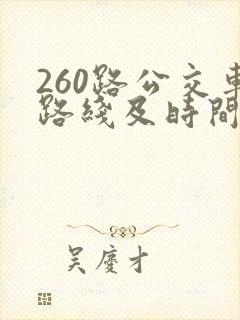 260路公交車
路綫及時間
吴慶才